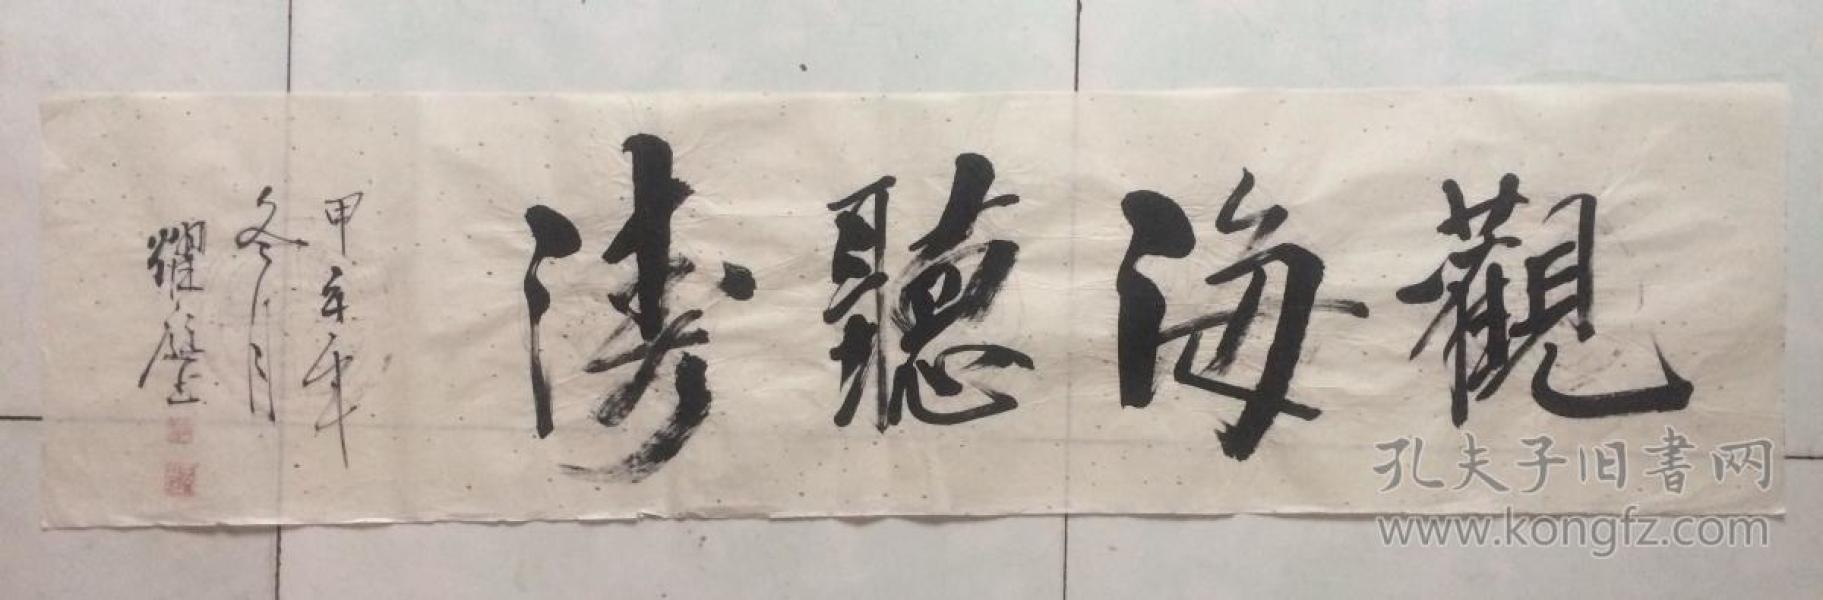 觀海聽涛
甲午年
冬月
耀庭
孔夫子旧书网
www.kongfz.com